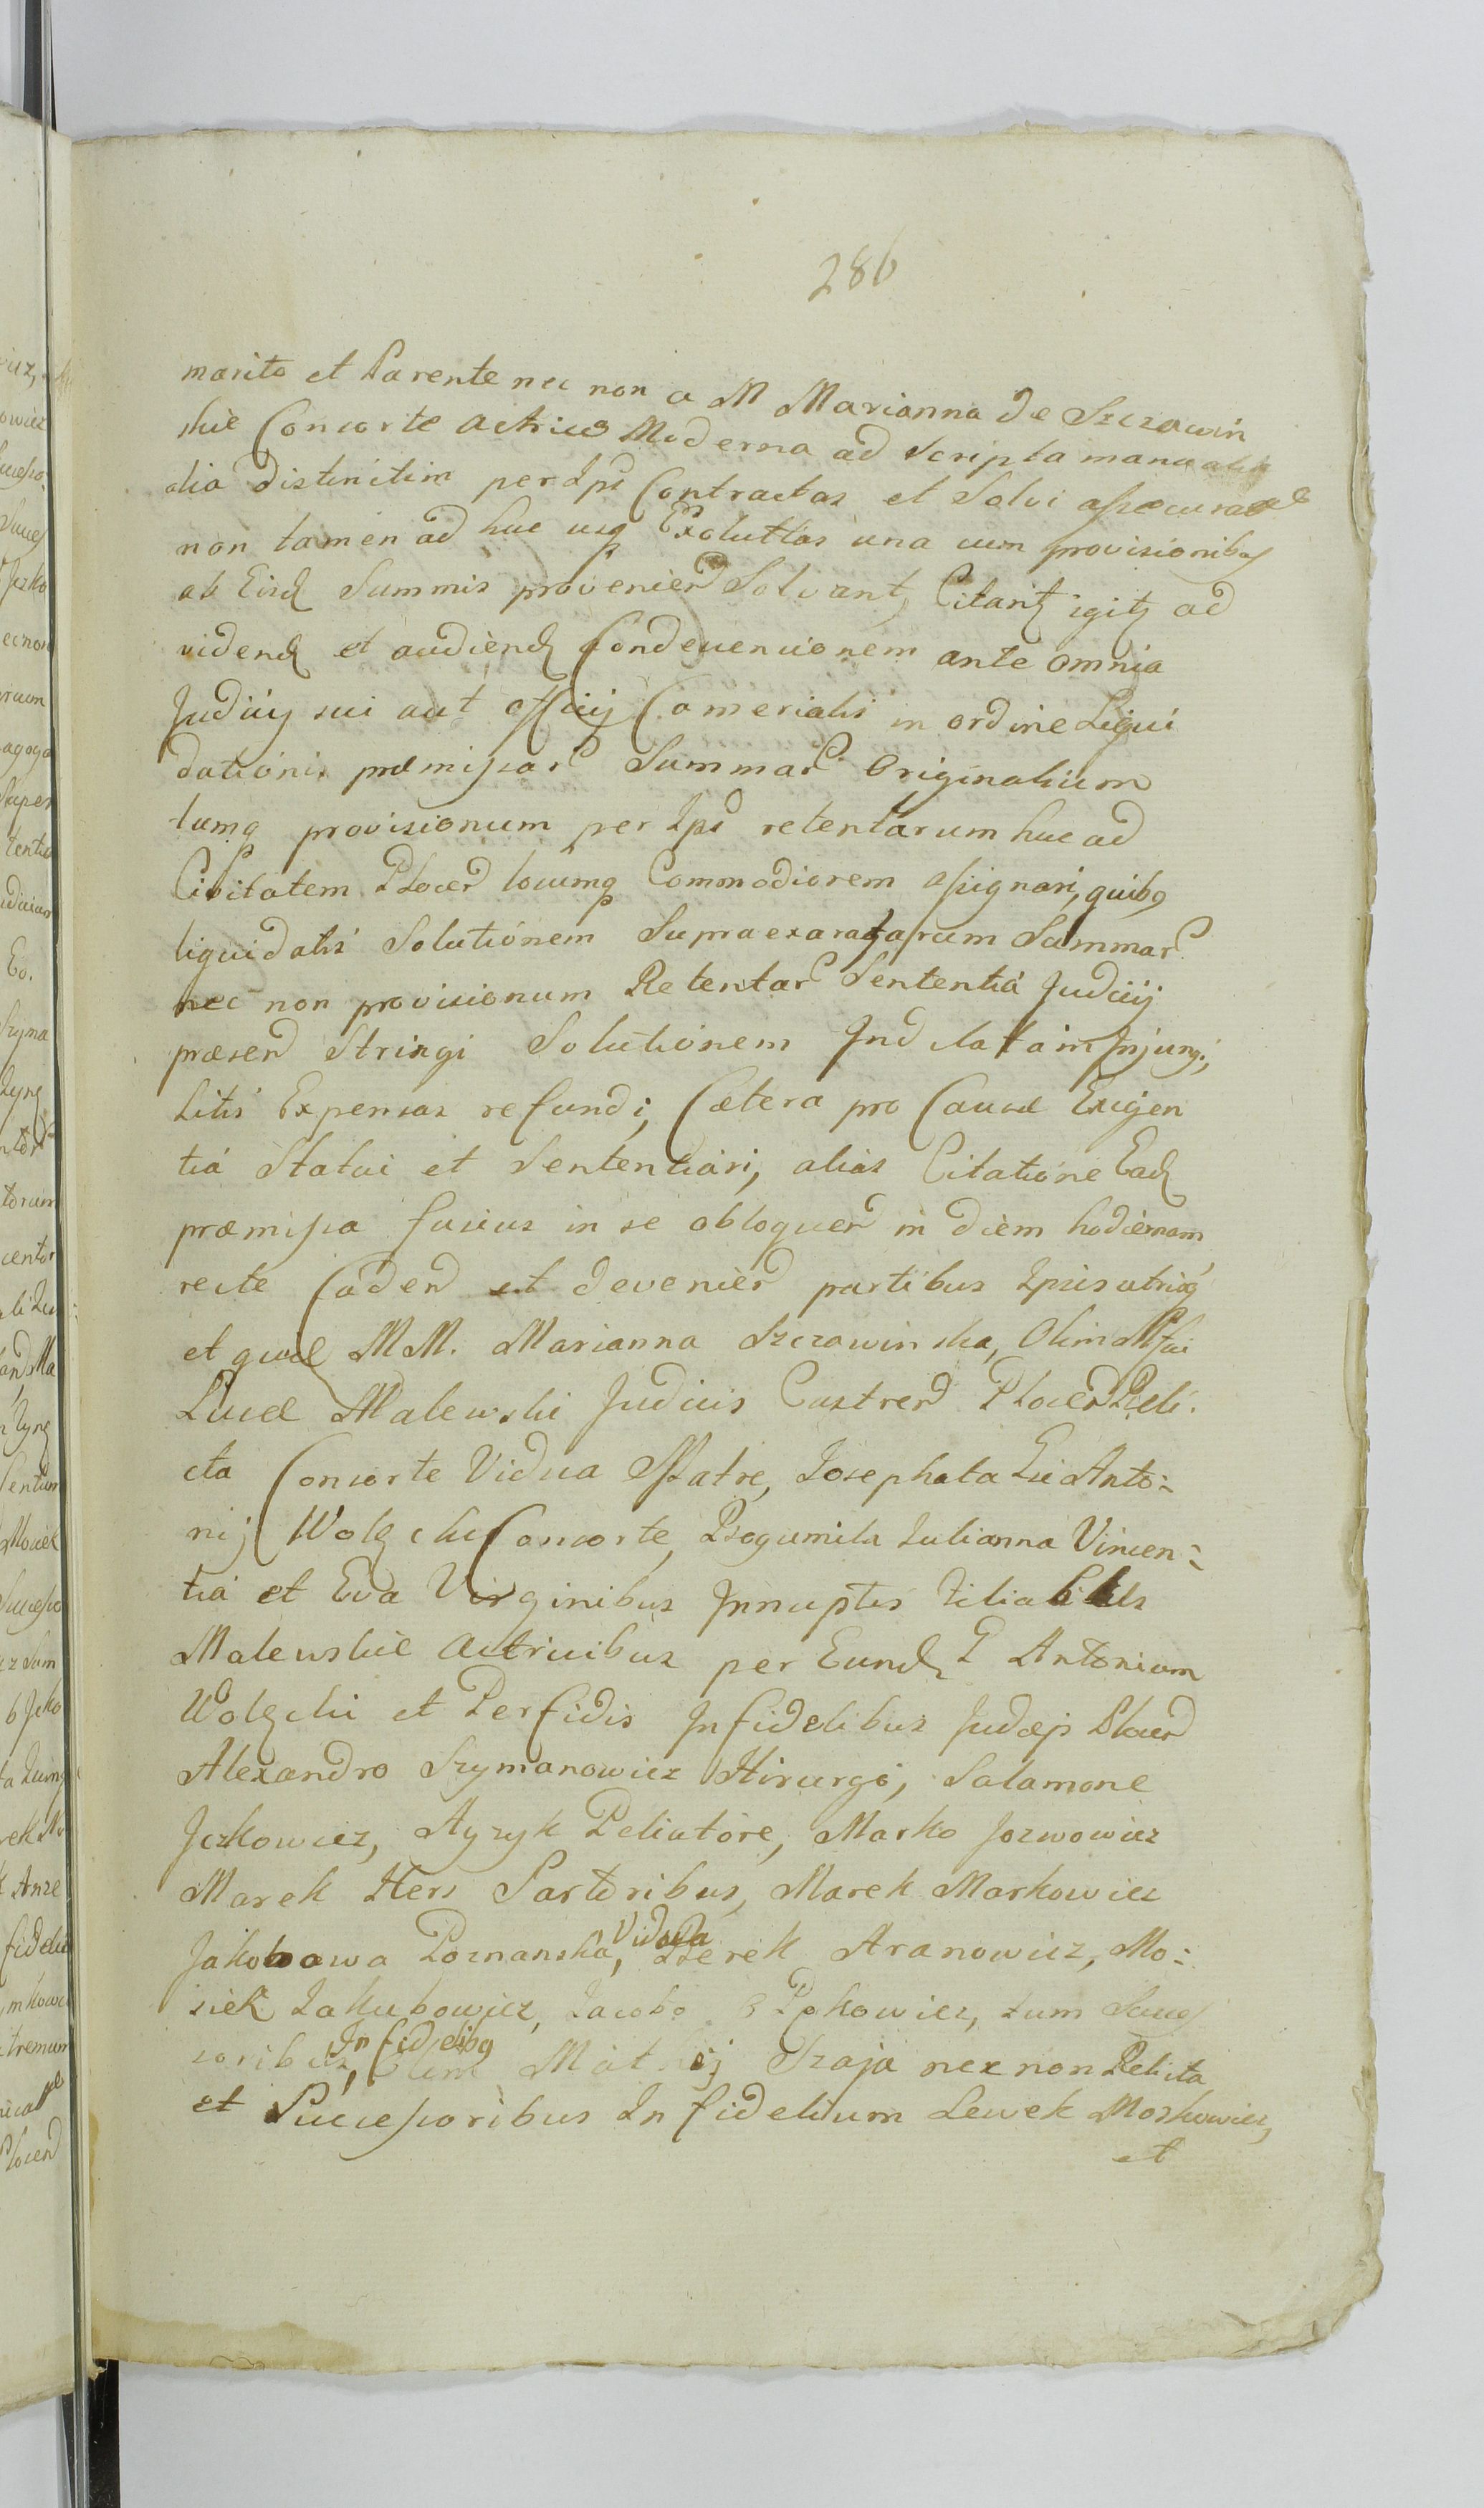 286
marito et Parente nec non a M Marianna de Szczawin
skie Consorte actrice Moderna ad Scripta manualia
alia distinctim per Ips Contractas et Solvi assecuratas
non tamen ad huc usq Exolutas una cum provisionibus
ab Eisd Summis provenien Solvant, Citant igitz ad
vidend et audiend Condevencionem ante omnia
Judicij sui aut officij Camerialis in ordine Liqui
dationis præmissar Summar Originalium
tumq provisionum per Ips retentarum huc ad
Civitatem Plocen locumq Commodiorem assignari, quibq
liquidatis Solutionem Supraexaratarum Summar
nec non provisionum Retentar Sententiá Judicij
præsen Stringi Solutionem Injungi,
Litis Expensas refundi, Cætera pro Causæ Exigen
tiá Statui et Sententiari, alias Citatione Ead
præmissa fusius in se obloquen in diem hodiernam
recte Caden et devenien partibus Ipsis utrinq
et quæ MM. Marianna Szczawinska, Olim Mfci
Lucæ Malewski Judicis Castren Plocen Reli-
cta Consorte Vidua Matre, Josephata Gsi Anto-
nij Wolski Consorte, Bogumila Julianna Vincen-
tiá et Eva Virginibus Innuptis Filiabus
Malewskie actricibus per Eund G Antonium
Wolski et Perfidis Infidelibus Judæis Plocen
Alexandro Szymanowicz Hirurgo, Salamone
Jczkowicz, Ayzyk Peliatore, Marko Jozwowicz
Marek Hers Sartoribus, Marek Markowicz
Jakobowa Poznanska, Vidua Berek Aranowicz, Mo-
siek Jakubowicz, Jacobo tum Succes
soribus, Infidelibq Olim Szaja nex non Relicta
et Successoribus Infidelium Lewek Moskowicz,
et